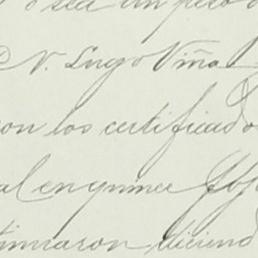 o sea un peso
N. Lugo Viña
con los certificado
al en quince
timaron diciend